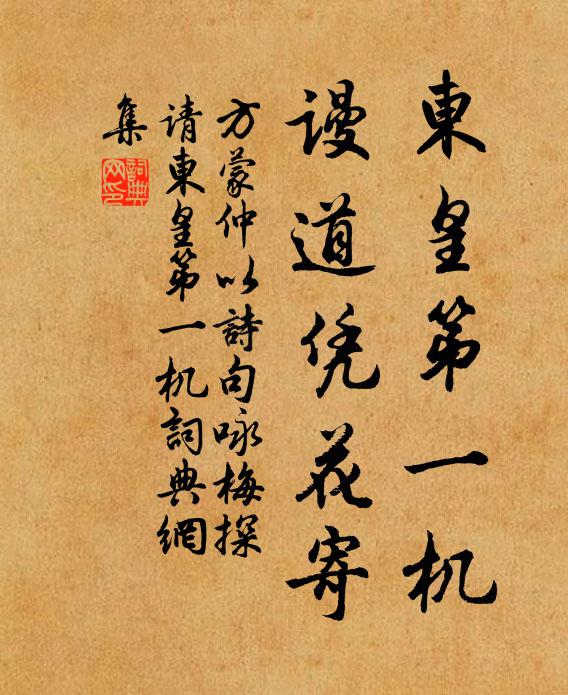 東皇第一机
谩道凭花寄
方蒙仲以詩句咏梅探
请東皇第一机詞典網
集
詞典网印